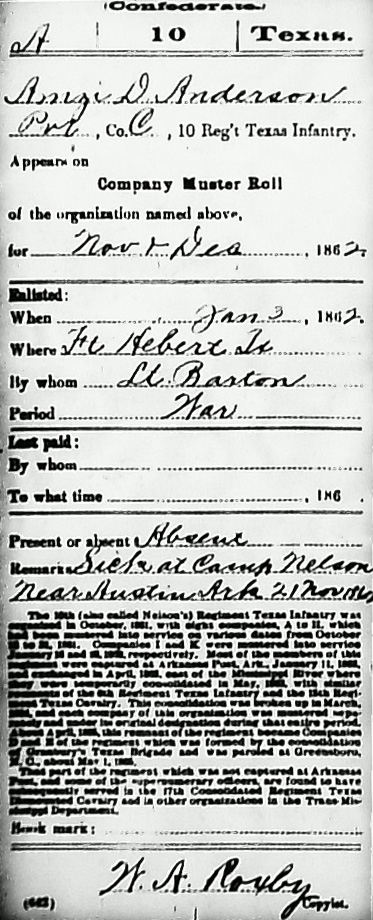 (Confederate.)
A | 10 | Texas.
Amzi D. Anderson
Pvt, Co. C, 10 Reg't Texas Infantry.
Appears on
Company Muster Roll
of the organization named above,
for Nov & Dec, 1862.
Enlisted:
When Jan 3, 1862.
Where Ft Hebert Tx
By whom Lt. Barton
Period War
Last paid:
By whom
To what time, 186
Present or absent Absent
Remarks: Sick at Camp Nelson
Near Austin Ark 21 Nov 1862
The 10th (also called Nelson's) Regiment Texas Infantry was
organized in October, 1861, with eight companies, A to H, which
had been mustered into service on various dates from October
to 1861. Companies I and K were mustered into service
January and 1862, respectively. Most of the members of this
regiment were captured at Arkansas Post, Ark., January 11, 1863,
and exchanged in April, 1863, east of the Mississippi River where
they were temporarily consolidated in May, 1863, with similar
remnants of the 6th Regiment Texas Infantry and the 15th Regi-
ment Texas Cavalry. This consolidation was broken up in March,
1864, and each company of this organization was mustered sepa-
rately and under its original designation during that entire period.
About April, 1865, this remnant of the regiment became Companies
and of the regiment which was formed by the consolidation
of Granbury's Texas Brigade and was paroled at Greensboro,
N. C., about May 1, 1865.
That part of the regiment which was not captured at Arkansas
Post, and some of the supernumerary officers, are found to have
subsequently served in the 17th Consolidated Regiment Texas
Dismounted Cavalry and in other organizations in the Trans-Mis-
sissippi Department.
Book mark:
W. A. Roxby
(642) Copyist.